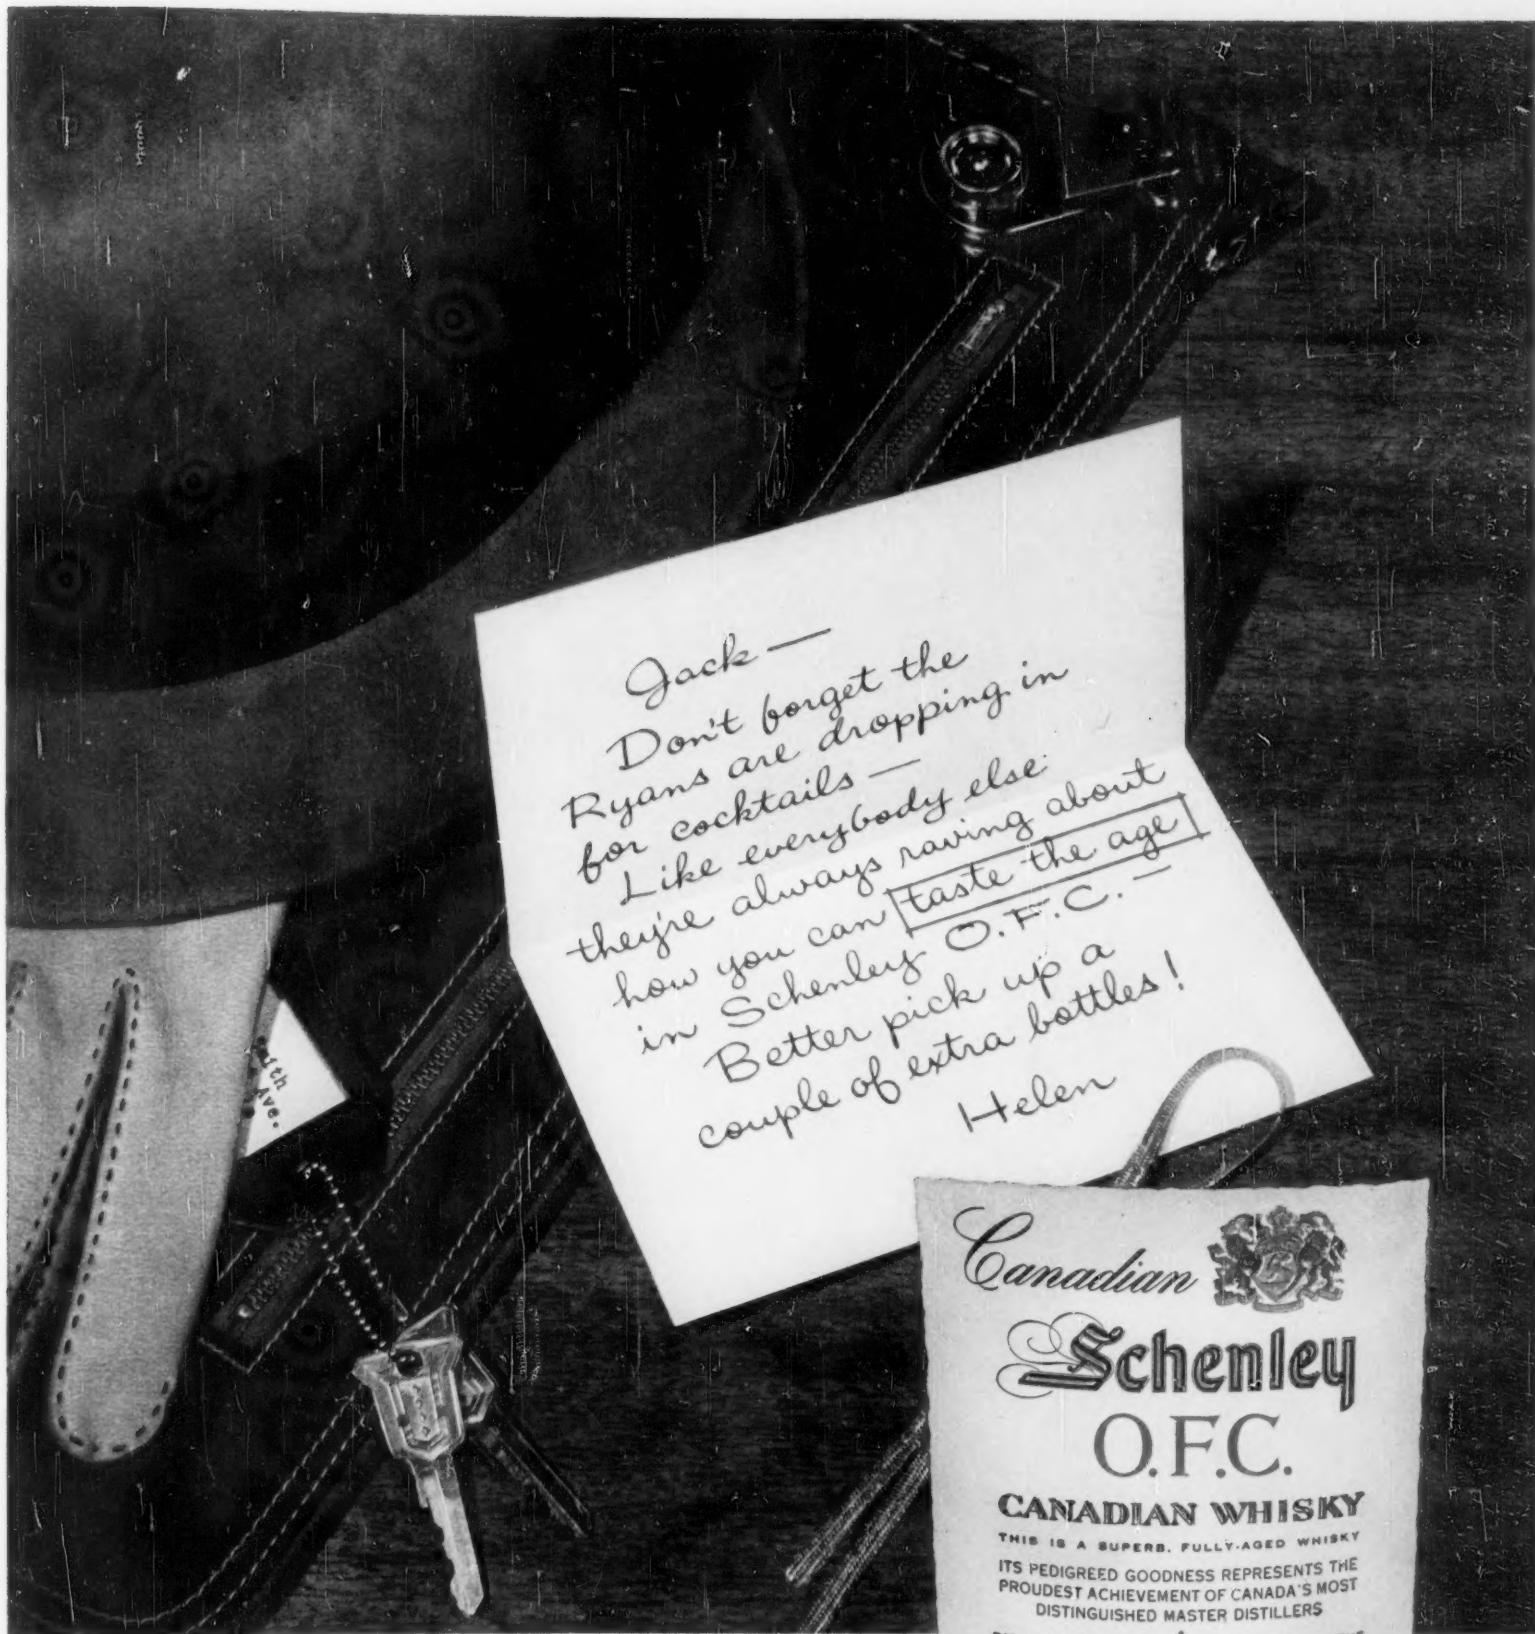 Jack —
Don't forget the
Ryans are dropping in
for cocktails —
Like everybody else
they're always raving about
how you can taste the age
in Schenley O.F.C. —
Better pick up a
couple of extra bottles!
Helen
Ave.
Canadian
Schenley
O.F.C.
CANADIAN WHISKY
THIS IS A SUPERB, FULLY-AGED WHISKY
ITS PEDIGREED GOODNESS REPRESENTS THE
PROUDEST ACHIEVEMENT OF CANADA'S MOST
DISTINGUISHED MASTER DISTILLERS